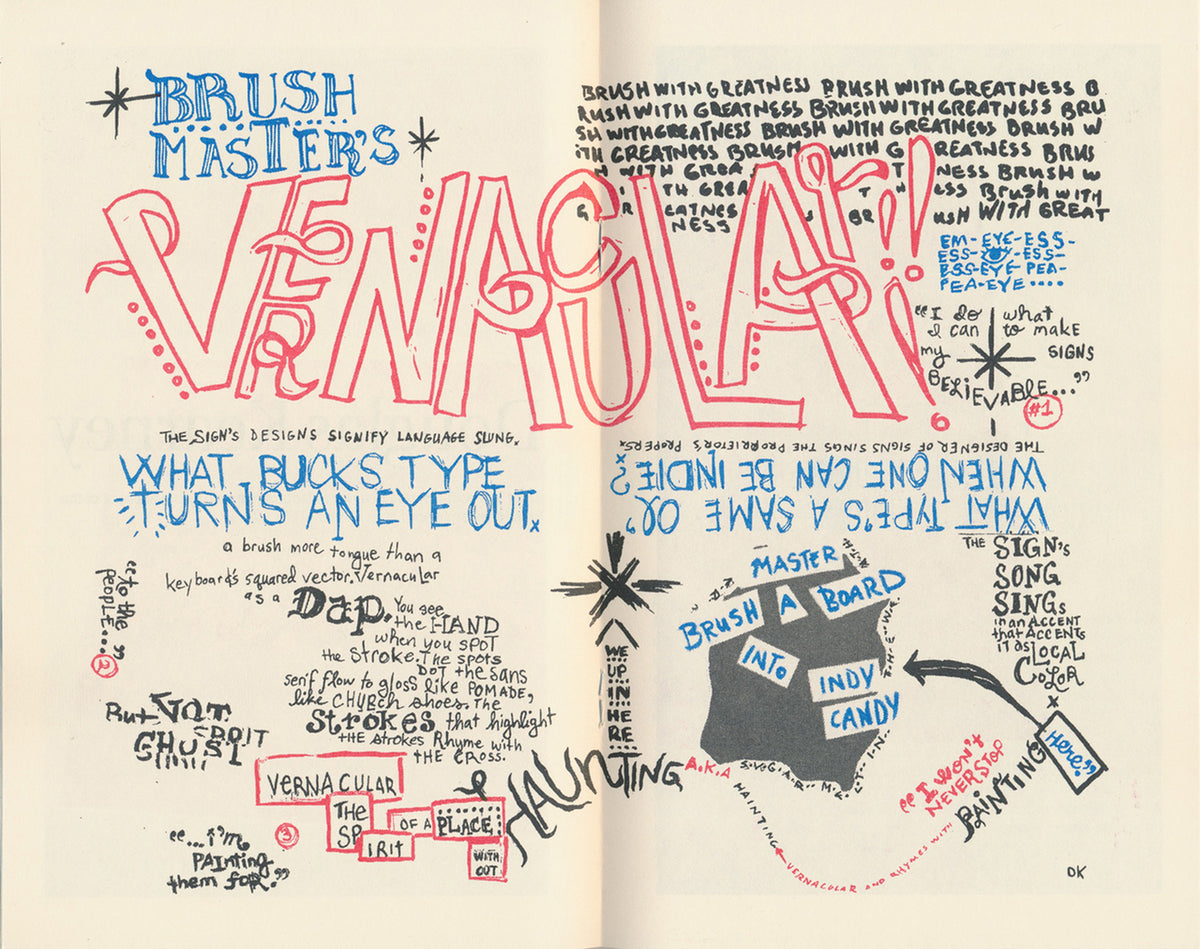 BRUSH
MASTER'S
VERNACULAR!!
BRUSH WITH GREATNESS BRUSH WITH GREATNESS B
RUSH WITH GREATNESS BRUSH WITH GREATNESS BRU
SH WITH GREATNESS BRUSH WITH GREATNESS BRUSH W
ITH GREATNESS BRUSH WITH G REATNESS BRUS
H WITH GREA T NESS BRUSH W
I TH GREA T H ESS BRUSH WITH
G R EATNES S BR USH WITH GREAT
NESS
EM-EYE-ESS-
ESS-EYE-ESS-
ESS-EYE-PEA-
PEA-EYE....
"I do what
I can to make
my SIGNS
BELIEVABLE..."
#1
THE SIGN'S DESIGNS SIGNIFY LANGUAGE SLUNG.
WHAT BUCKS TYPE
TURNS AN EYE OUT.
THE DESIGNER OF SIGNS SINGS THE PROPRIETOR'S PROPERS.
WHEN ONE CAN BE INDIE?
WHAT TYPE'S A SAME OL'
a brush more tongue than a
keyboard's squared vector, Vernacular
as a Dap. You see
the HAND
when you SPOT
the STROKE. The spots
DOT the sans
serif flow to gloss like POMADE,
like CHURCH shoes. The
Strokes that highlight
THE STROKES Rhyme with
THE CROSS.
"to the
PEOPLE..."
2
But NOT
GHOST
VERNACULAR
THE
SPIRIT
OF A PLACE
WITH
OUT
HAUNTING
"...i'm
PAINTING
them FOR."
3
WE
UP
IN
HE
RE
MASTER
BRUSH A BOARD
INTO
INDY
CANDY
THE SIGN'S
SONG
SINGS
in an ACCENT
that ACCENTS
it as LOCAL
COLOR
HERE."
"I WON'T
NEVER STOP
PAINTING
A.K.A
HAINTING
VERNACULAR AND RHYMES WITH
DK